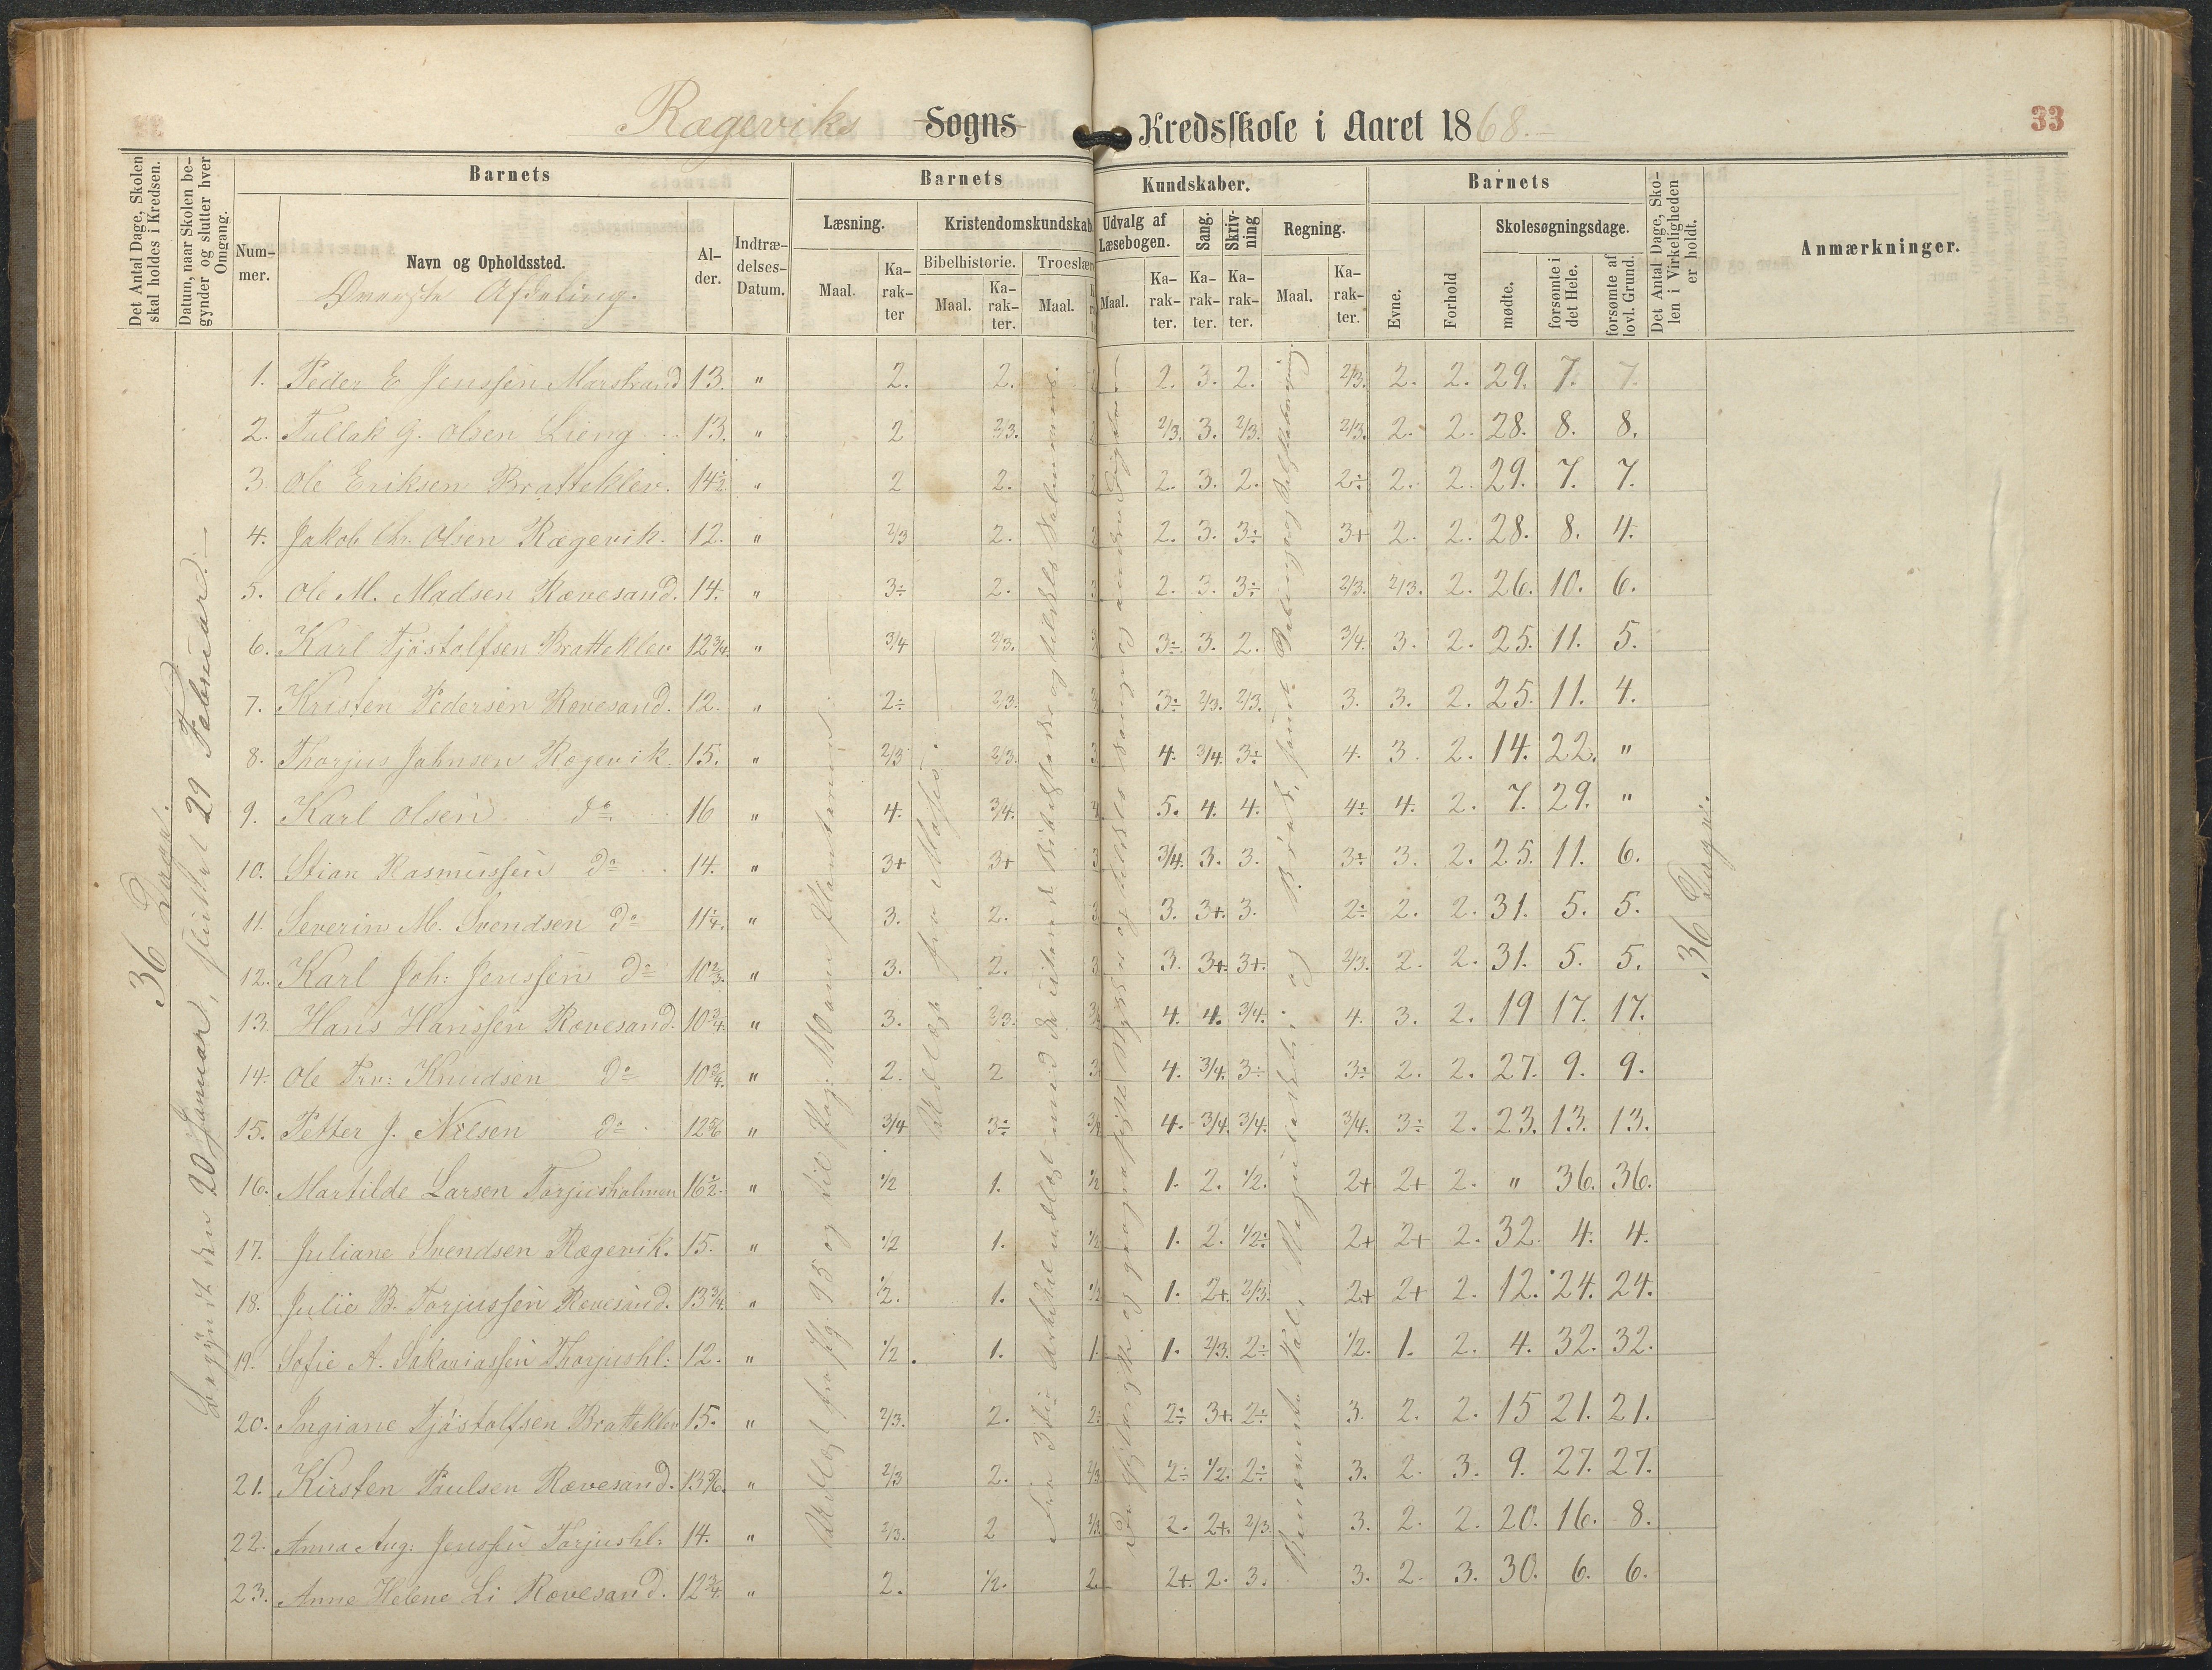 Rægeviks Sogns Kredsskole i Aaret 1868.
33
Det Antal Dage, Skolen skal holdes i Kredsen.
Datum, naar Skolen begynder og slutter hver Omgang.
Barnets
Barnets Kundskaber.
Barnets
Det Antal Dage, Skolen i Virkeligheden er holdt.
Anmærkninger.
Nummer.
Navn og Opholdssted.
Øverste Afdeling.
Alder.
Indtrædelses-Datum.
Læsning.
Kristendomskundskab
Udvalg af Læsebogen.
Sang.
Skrivning
Regning.
Skolesøgningsdage.
Bibelhistorie.
Troeslære
Maal.
Karakter
Maal.
Karakter.
Maal.
Maal.
Karakter.
Karakter.
Karakter.
Maal.
Karakter.
Evne.
Forhold
mødte.
forsømte i det Hele.
forsømte af lovl. Grund.
36 Dage.
Begyndt den 20 Januar, sluttet 29 Februar.
36 Dage.
1. Peder E Jenssen Marstrand 13. " 2. 2. 2 2. 3. 2. 2/3. 2. 2. 29. 7. 7.
2. Tallak G. Olsen Lieng 13. " 2 2/3. 2 2/3. 3. 2/3. 2/3. 2. 2. 28. 8. 8.
3. Ole Eriksen Bratteklev. 14½ " 2 2. 2 2. 3. 2. 2÷ 2. 2. 29. 7. 7.
4. Jakob Chr. Olsen Rægevik. 12. " 2/3 2. 2 2. 3. 3÷ 3+ 2. 2. 28. 8. 4.
5. Ole M. Madsen Rævesand. 14. " 3÷ 2. 3 2. 3. 3÷ 2/3. 2/3. 2. 26. 10. 6.
6. Karl Tjøstolfsen Bratteklev 12¾. " 3/4 2/3. 3 3÷ 3. 2. 3/4. 3. 2. 25. 11. 5.
7. Kristen Pedersen Rævesand. 12. " 2÷ 2/3. 3 3÷ 2/3. 2/3. 3. 3. 2. 25. 11. 4.
8. Thorjus Johnsen Rægevik. 15. " 2/3 2/3. 3 4. 3/4. 3÷ 4. 3. 2. 14. 22. "
9. Karl Olsen do 16 " 4. 3/4. 4 5. 4. 4. 4÷ 4. 2. 7. 29. "
10. Stian Rasmussen do 14. " 3+ 3+ 3 3/4. 3. 3. 3÷ 3. 2. 25. 11. 6.
11. Severin M. Svendsen do 11¼. " 3. 2. 3 3. 3+. 3. 2÷ 2. 2. 31. 5. 5.
12. Karl Joh: Jenssen do 10⅔. " 3. 2. 3 3. 3+. 3+. 2/3. 2. 2. 31. 5. 5.
13. Hans Hanssen Rævesand. 10¾. " 3. 2/3. 3/4 4. 4. 3/4. 4. 3. 2. 19 17. 17.
14. Ole Trv: Knudsen do 10¾. " 2. 2 3 4. 3/4. 3÷ 3÷ 2. 2. 27. 9. 9.
15. Petter J. Nilsen do 12 5/6 " 3/4 3÷ 3/4 4. 3/4. 3/4. 3/4. 3÷ 2. 23. 13. 13.
16. Martilde Larsen Torjusholmen 16½. " 1/2 1. 1/2 1. 2. 1/2. 2+ 2+ 2. " 36. 36.
17. Juliane Svendsen Rægevik. 15. " 1/2 1. 1/2 1. 2. 1/2÷ 2+ 2+ 2. 32. 4. 4.
18. Julie B. Torjussen Rævesand. 13¾. " 1/2. 1. 1/2 1. 2+. 2/3. 2+ 2+ 2. 12. 24. 24.
19. Sofie A. Sakariassen Thorjushl: 12. " 1/2. 1. 1 1. 2/3. 2÷ 1/2. 1. 2. 4. 32. 32.
20. Ingiane Tjøstolfsen Bratteklev 15. " 2/3. 2. 2÷ 2÷ 3+. 2÷ 3. 2. 2. 15 21. 21.
21. Kirsten Paulsen Rævesand. 13 5/6. " 2/3 2. 2/3 2÷ 1/2. 2÷ 3. 2. 3. 9. 27. 27.
22. Anna Aug: Jenssen Torjushl: 14. " 2/3. 2 2/3 2. 2+. 2/3. 3. 2. 2. 20. 16. 8.
23. Anne Helene Li Rævesand. 12¾. " 2. 1/2. 2 2+. 2. 3. 3. 2. 3. 30. 6. 6.